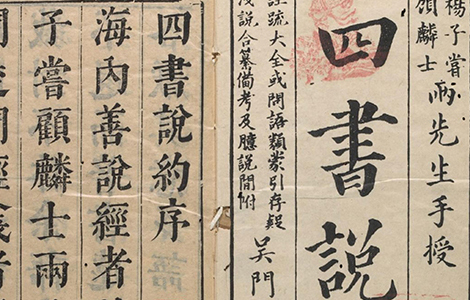 楊子嘗
顧麟士
兩先生手授
四書說
註疏大全或問語類蒙引存疑
淺說合纂備考及臆說間附
吳門
四書說約序
海內善說經者
子嘗顧麟士兩
經義者